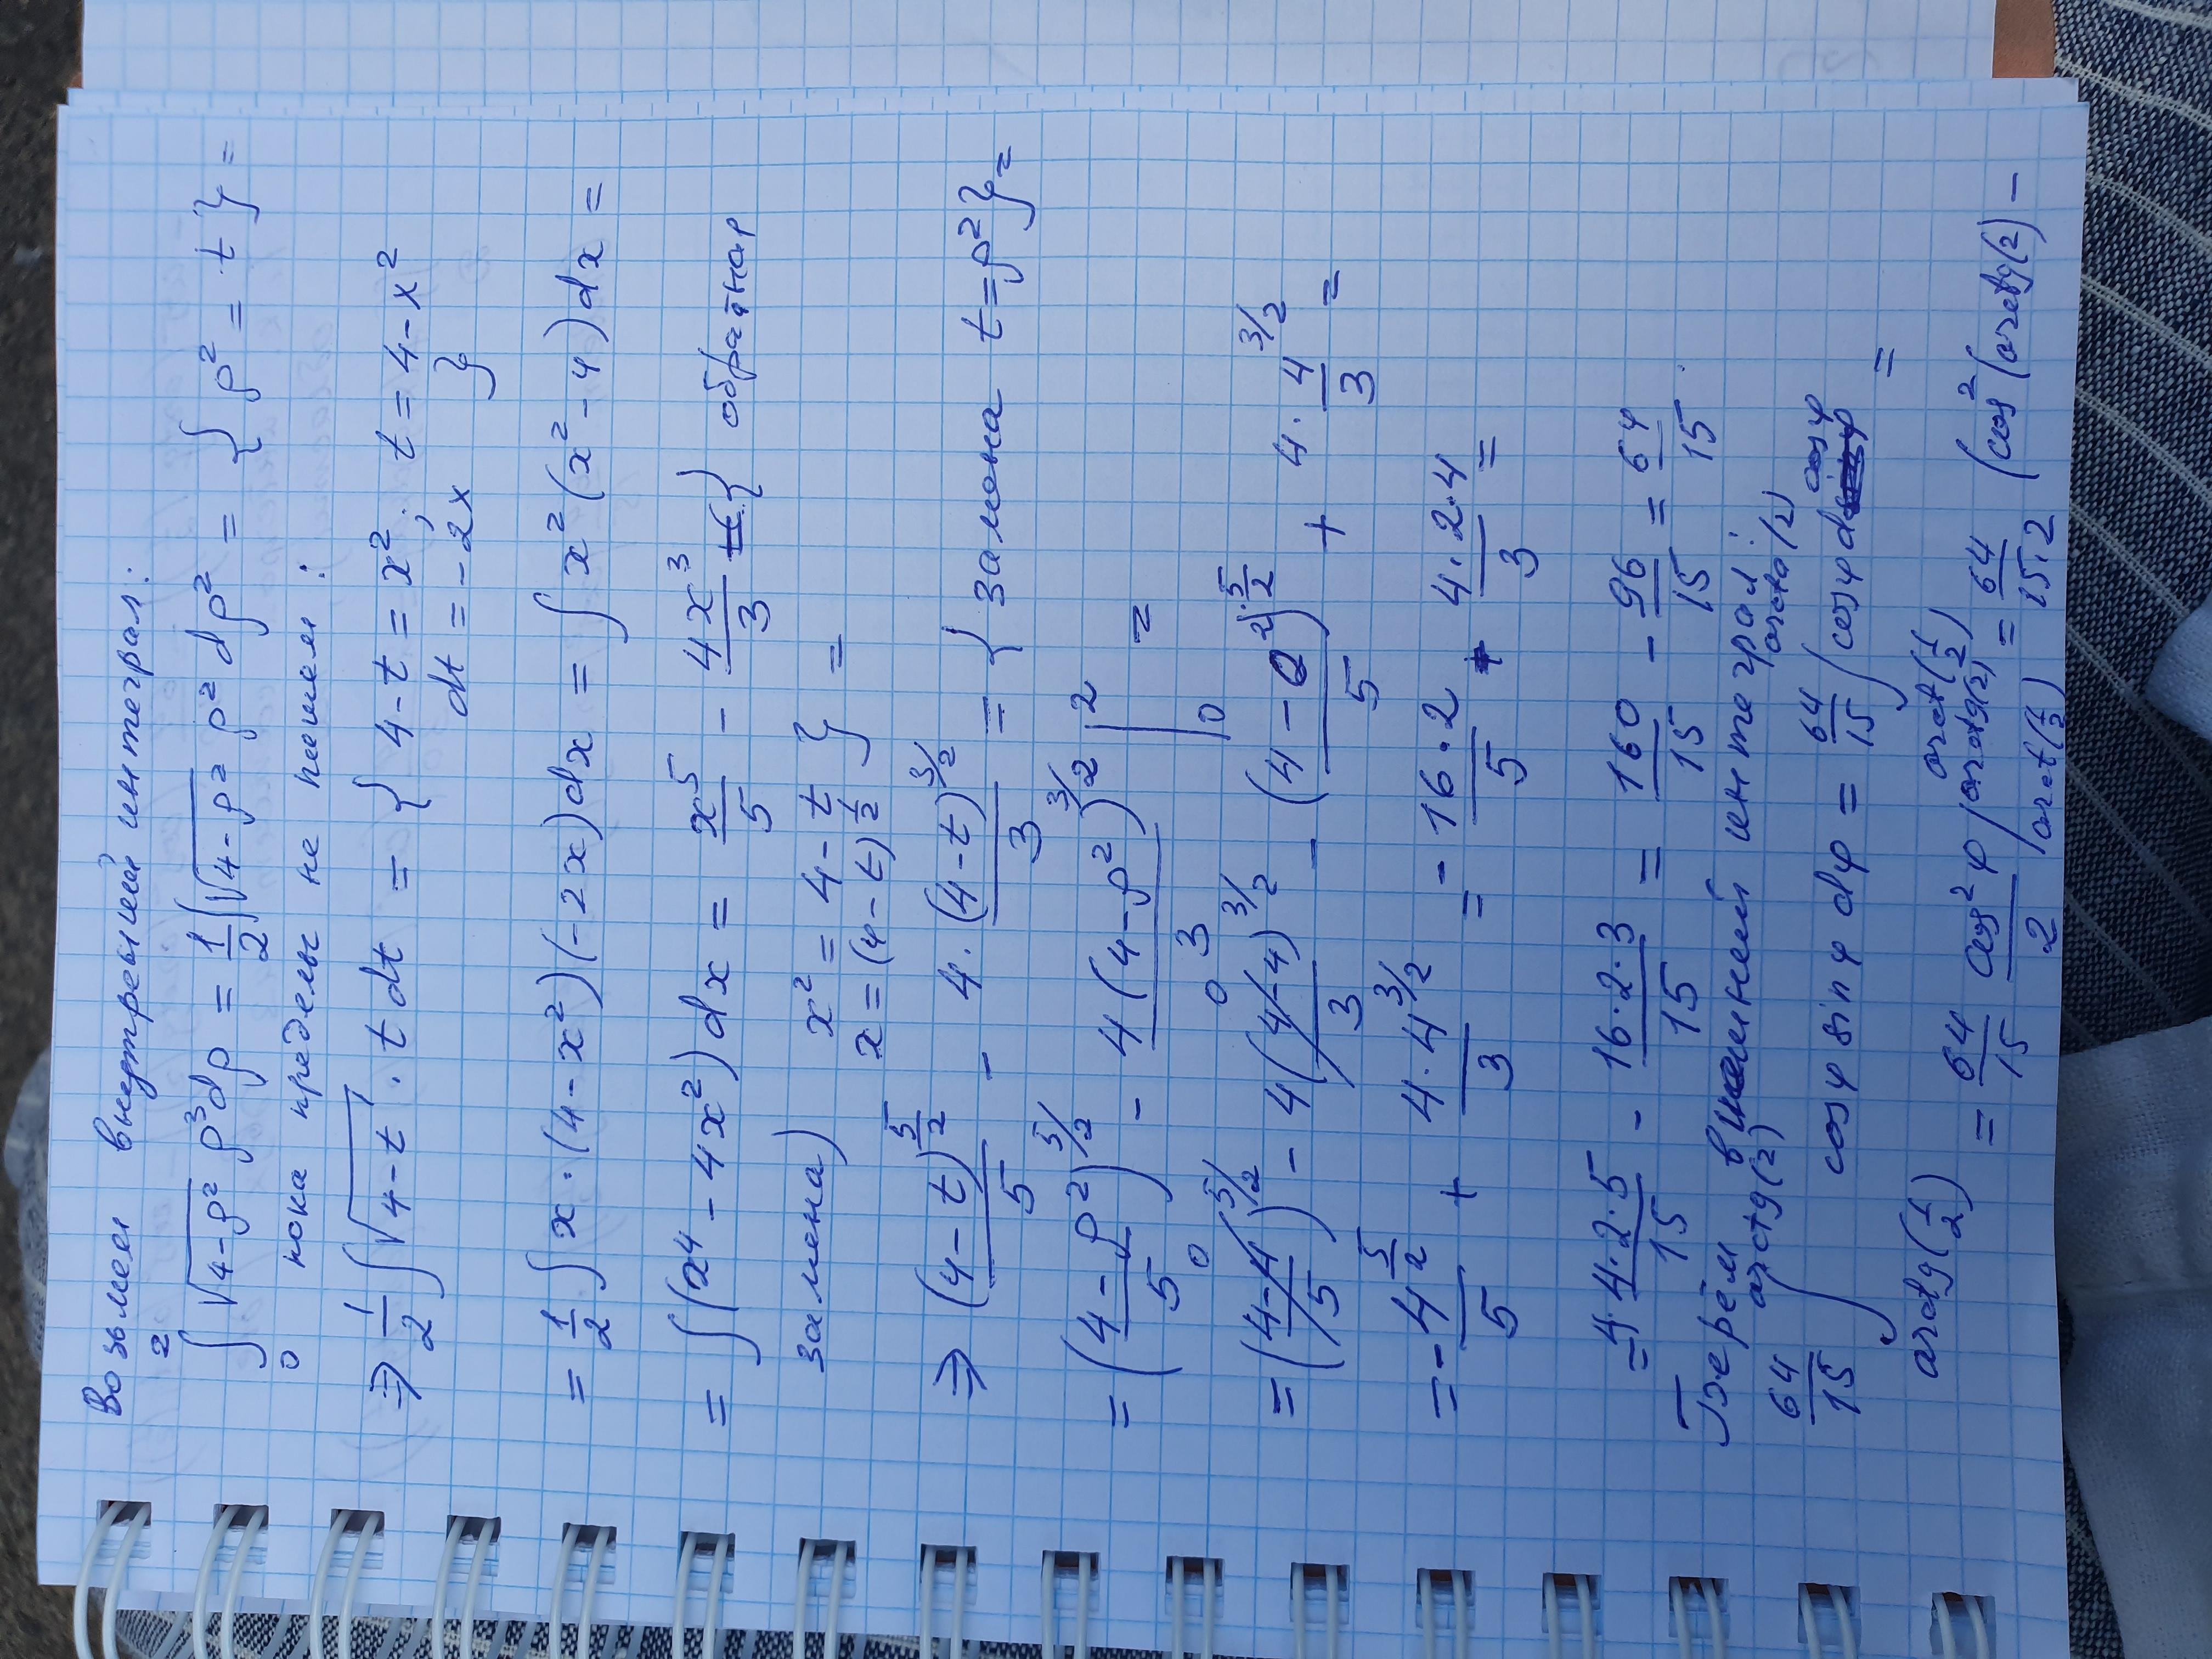 Возьмем внутренний интеграл:
∫₀² √(4-ρ²) ρ³dρ = 1/2 ∫√(4-ρ²) ρ² dρ² = { ρ² = t } =
пока пределы не пишем:
⇒ 1/2 ∫√(4-t) · t dt = { 4-t = x²; t = 4-x²
dt = -2x }
= 1/2 ∫ x·(4-x²)(-2x)dx = ∫ x²(x²-4)dx =
= ∫(x⁴-4x²)dx = x⁵/5 - 4x³/3 { обратная
замена) x² = 4-t
x = (4-t)^(1/2) } =
⇒ (4-t)^(5/2)/5 - 4·(4-t)^(3/2)/3 = { замена t=ρ² } =
= (4-ρ²)^(5/2)/5 - 4(4-ρ²)^(3/2)/3 |₀² =
= (4-4)^(5/2)/5 - 4(4-4)^(3/2)/3 - (4-0²)^(5/2)/5 + 4·4^(3/2)/3 =
= -4^(5/2)/5 + 4·4^(3/2)/3 = -16·2/5 + 4·2·4/3 =
= 4·4·2·5/15 - 16·2·3/15 = 160/15 - 96/15 = 64/15.
Берём внешний интеграл:
64/15 ∫ cosφ sinφ dφ = 64/15 ∫ cosφ d cosφ =
arctg(2)
arctg(1/2)
= 64/15 cos²φ/2 | = 64/15·2 (cos²(arctg(2) -